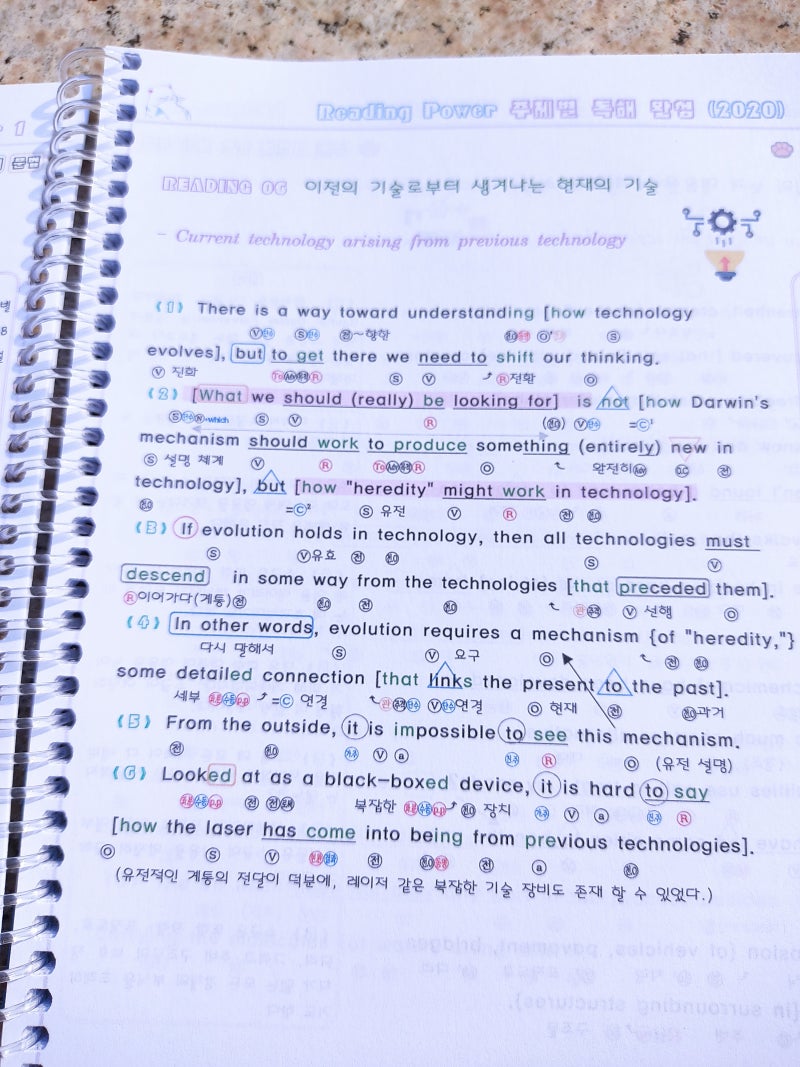 Reading Power 주제별 독해 완성 (2020)
1
READING 06 이전의 기술로부터 생겨나는 현재의 기술
- Current technology arising from previous technology
(1) There is a way toward understanding [how technology
V S 전~향한 S
evolves], but to get there we need to shift our thinking.
V 진화 S V R전환 O
(2) [What we should (really) be looking for] is not [how Darwin's
S which S V R (접) V =C¹
mechanism should work to produce something (entirely) new in
S 설명 체계 V R O 완전히 OC 전
technology], but [how "heredity" might work in technology].
=C² S 유전 V R 전
(3) If evolution holds in technology, then all technologies must
S V유효 전 S V
descend in some way from the technologies [that preceded them].
R이어가다(계통)전 전 V 선행 O
(4) In other words, evolution requires a mechanism {of "heredity,"}
다시 말해서 S V 요구 O 전
some detailed connection [that links the present to the past].
세부 =C 연결 V 연결 O 현재 전 과거
(5) From the outside, it is impossible to see this mechanism.
전 V a R O (유전 설명)
(6) Looked at as a black-boxed device, it is hard to say
복잡한 장치 V a R
[how the laser has come into being from previous technologies].
O S V 전 전 a
(유전적인 계통의 전달이 덕분에, 레이저 같은 복잡한 기술 장비도 존재 할 수 있었다.)